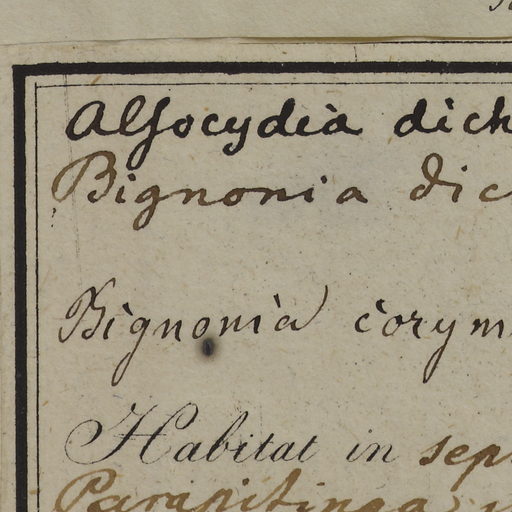 Alsocydia dich
Bignonia dic
Bignonia corym
Habitat in sep
Parapitinga